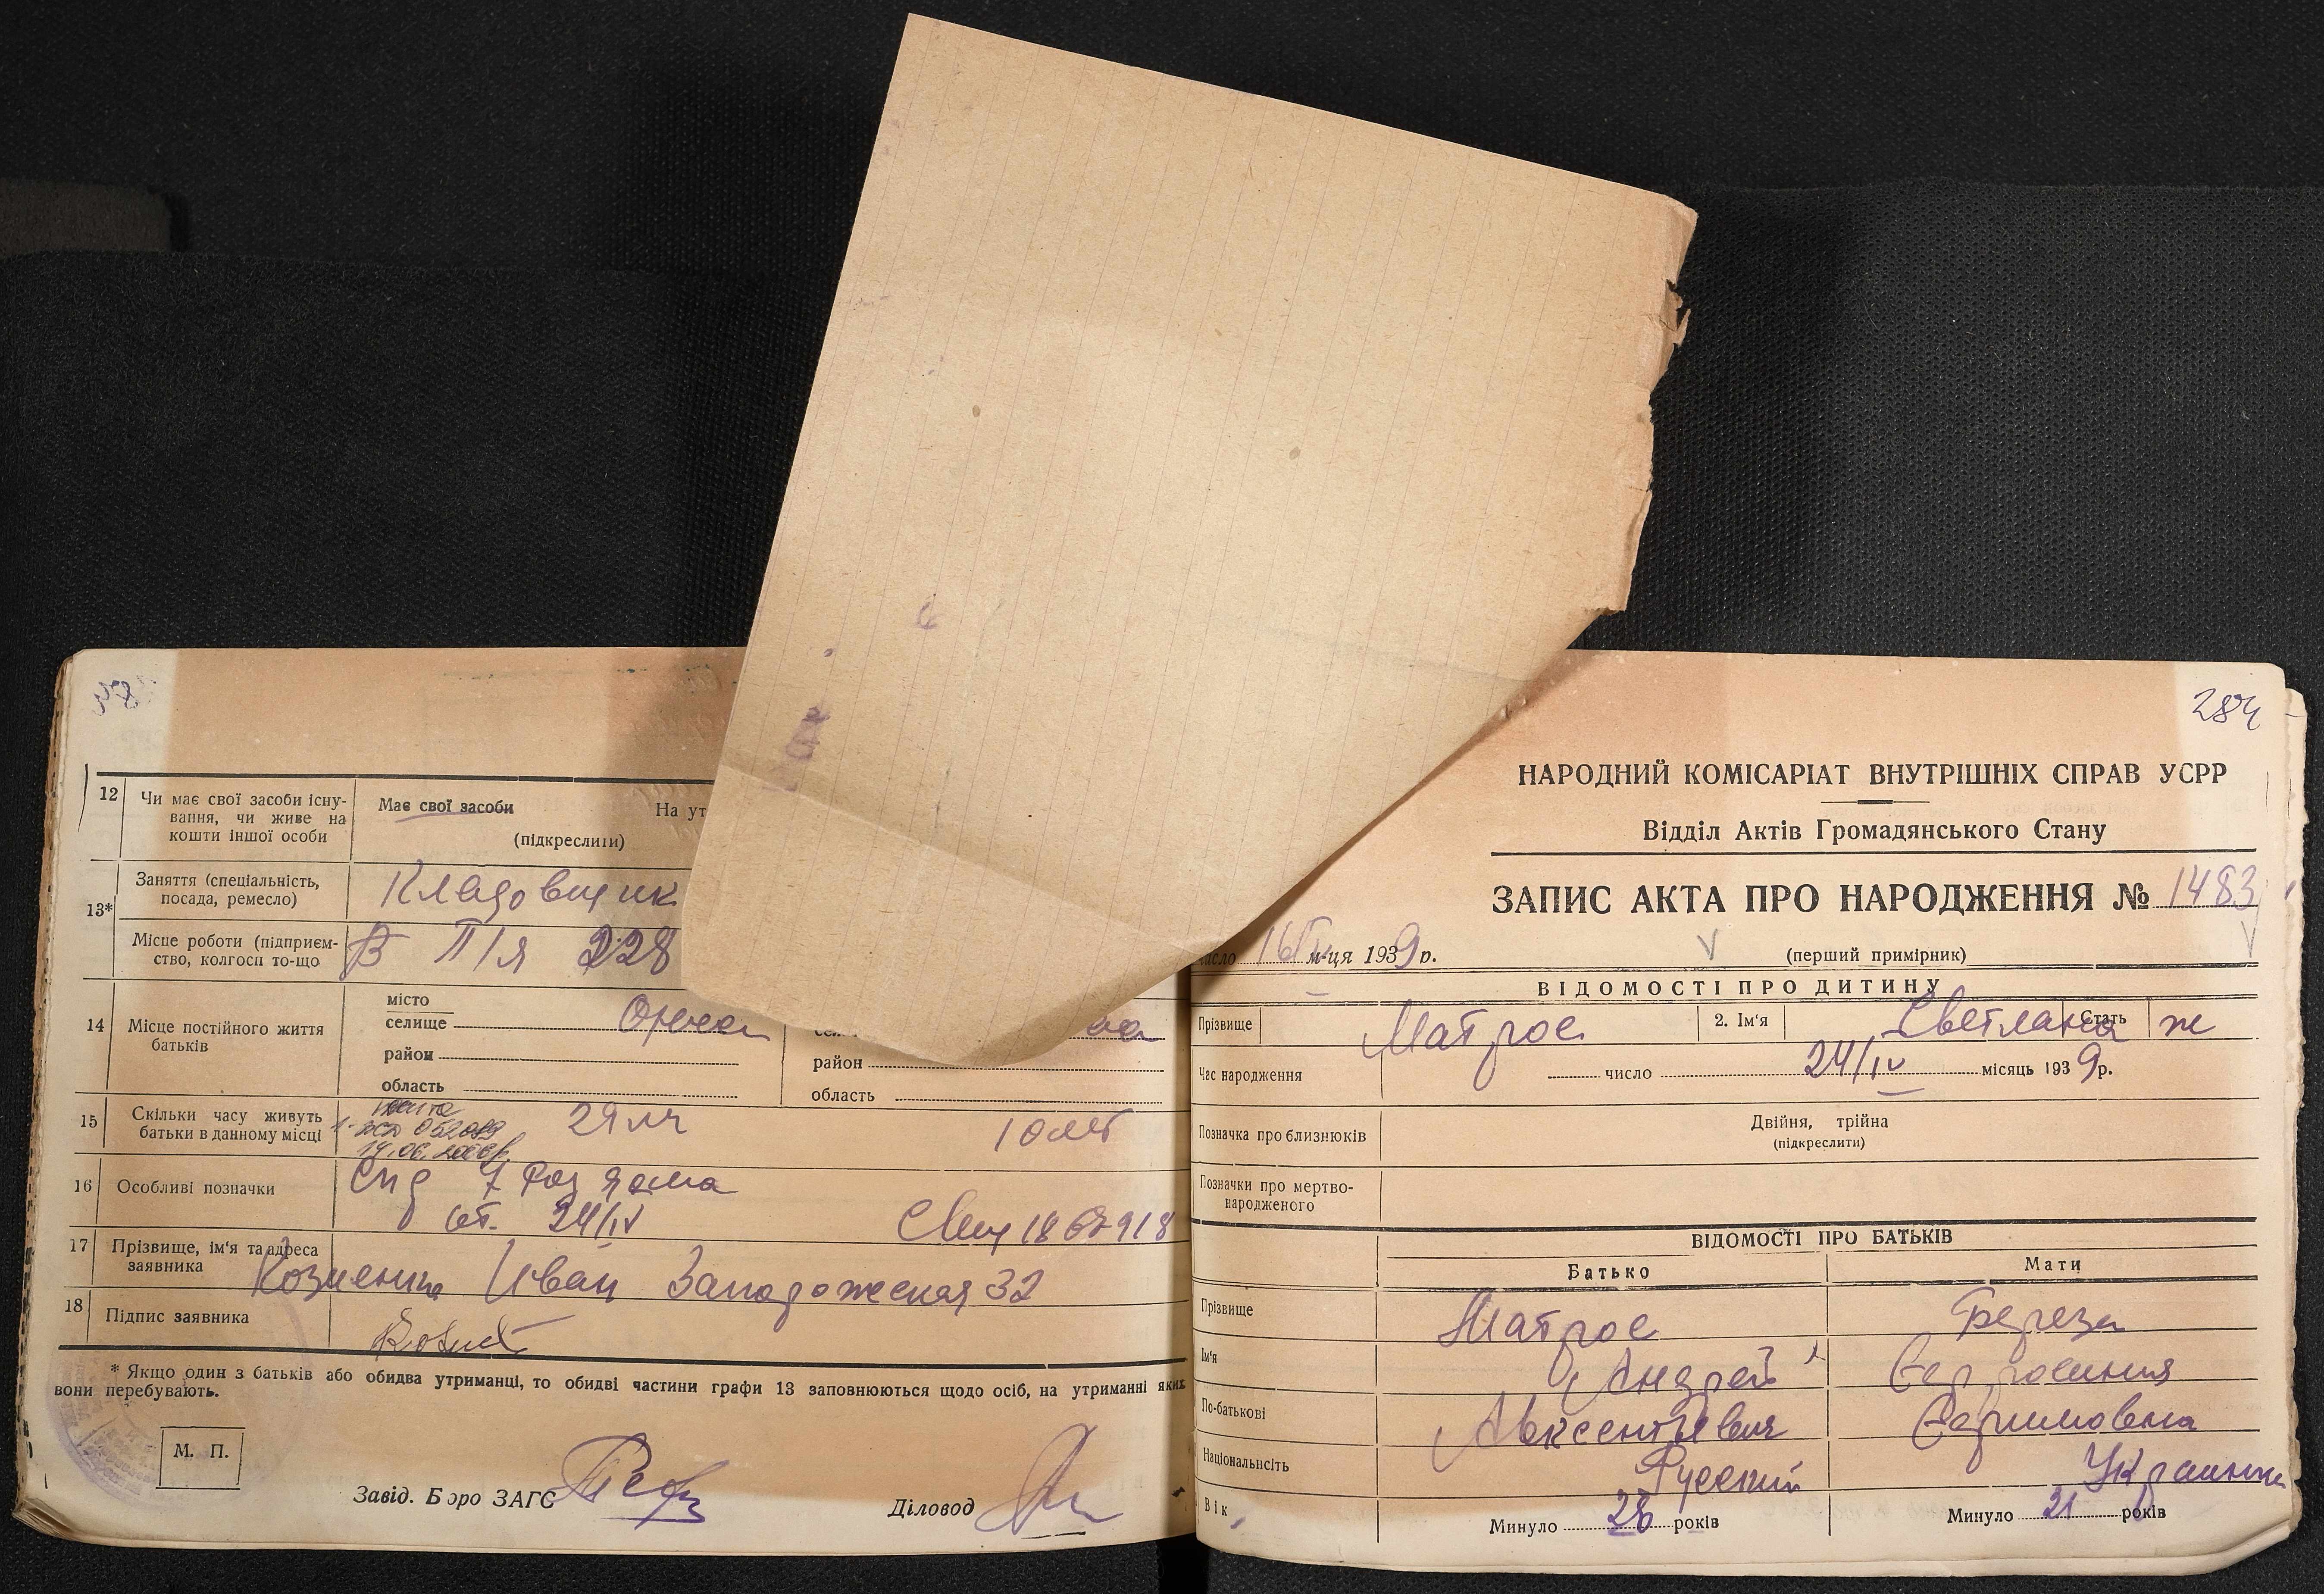 12 Чи має свої засоби існу-
вання, чи живе на
кошти іншої особи
Має свої засоби На ут
(підкреслити)
13*
Заняття (спеціальність,
посада, ремесло)
Кладовщик
Місце роботи (підприєм-
ство, колгосп то-що
В П/я 228
14 Місце постійного життя
батьків
місто
селище
район
область
район
область
15 Скільки часу живуть
батьки в данному місці
29 лт 10 лет
16 Особливі позначки
от. 24/IV
17 Прізвище, ім'я та адреса
заявника
Иван 32
18 Підпис заявника
* Якщо один з батьків або обидва утриманці, то обидві частини графи 13 заповнюються щодо осіб, на утриманні яких
вони перебувають.
М. П.
Завід. Бюро ЗАГС
Діловод
284
НАРОДНИЙ КОМІСАРІАТ ВНУТРІШНІХ СПРАВ УСРР
Відділ Актів Громадянського Стану
ЗАПИС АКТА ПРО НАРОДЖЕННЯ № 1483
число м-ця 1939 р.
(перший примірник)
ВІДОМОСТІ ПРО ДИТИНУ
Прізвище Матрос 2. Ім'я Светлана Стать ж
Час народження число 24/IV місяць 1939 р.
Позначка про близнюків
Двійня, трійна
(підкреслити)
Позначки про мертво-
народженого
ВІДОМОСТІ ПРО БАТЬКІВ
Батько Мати
Прізвище Матрос Береза
Ім'я Андрей
По-батькові Авксентьевич
Національність Русский Украинка
Вік Минуло 28 років Минуло 21 років